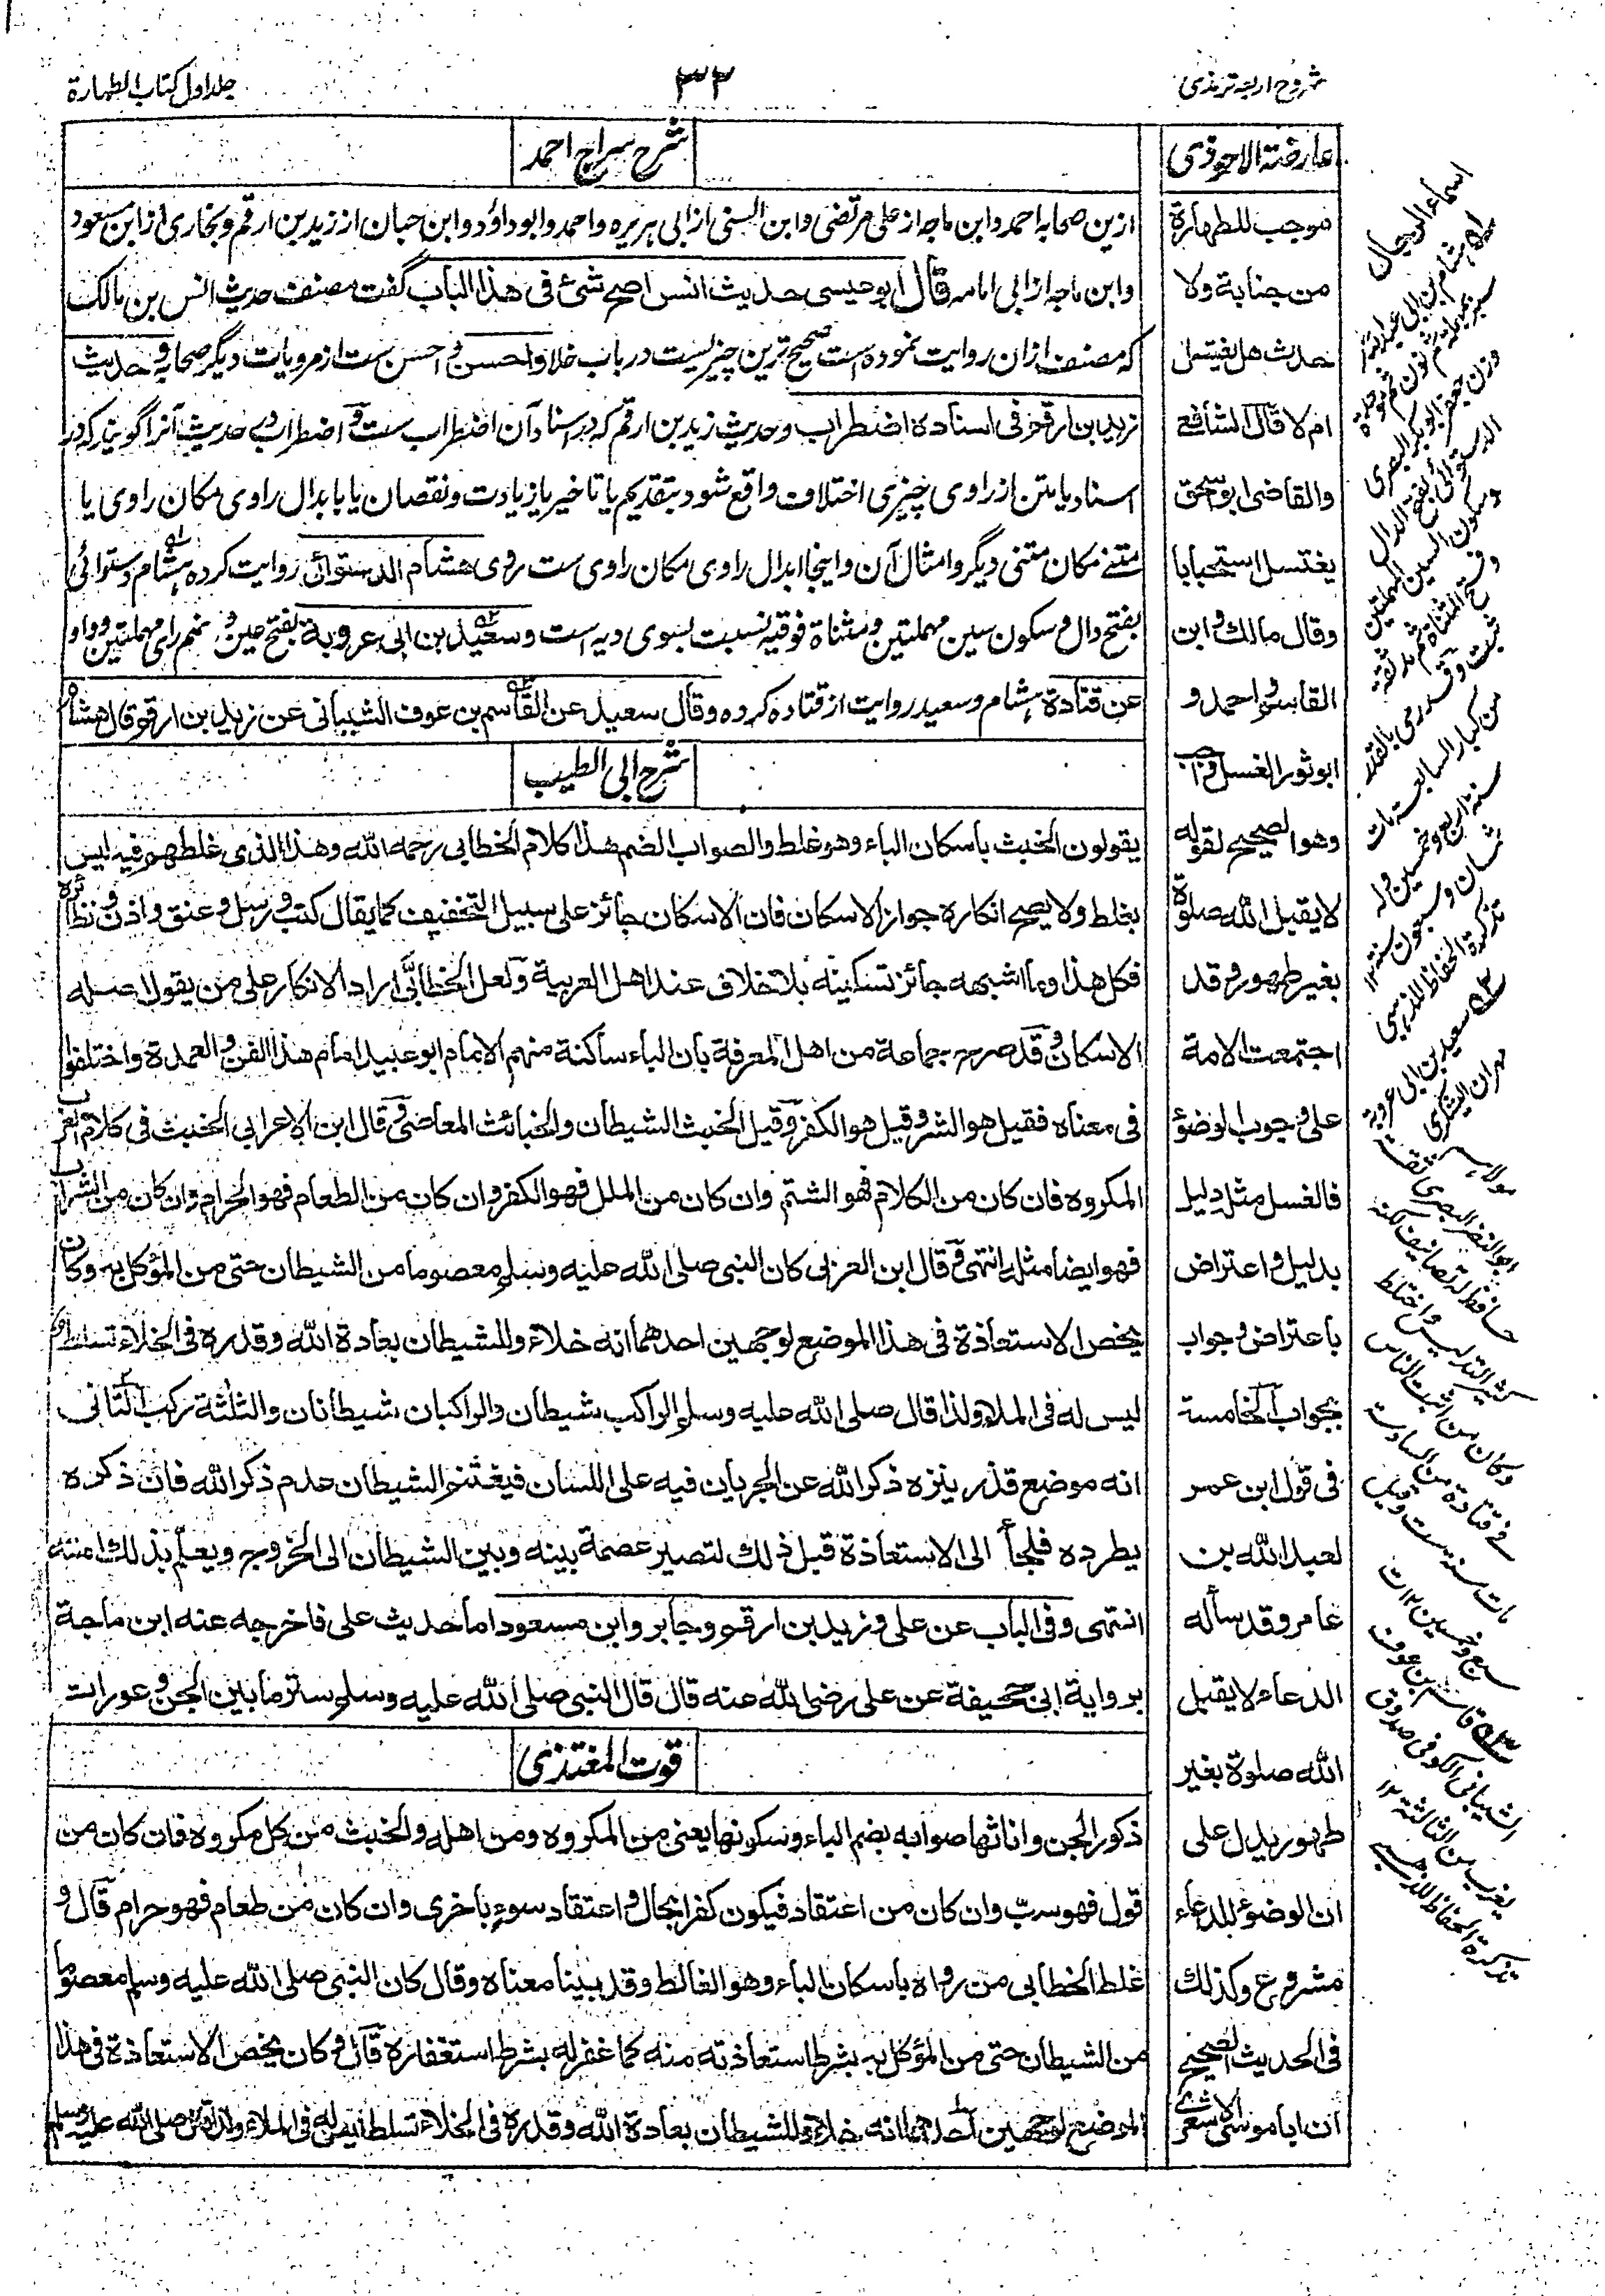 شروح اربعہ ترمذی
۳۳
جلد اول کتاب الطہارۃ
عارضۃ الاحوذی
موجب للطہارۃ
من جنابة ولا
حدث هل یغتسل
ام لا قال الشافعے
والقاضی ابو اسحق
یغتسل استحبابا
وقال مالك و ابن
القاسم و احمد و
ابو ثور الغسل واجب
وهو الصحیح لقوله
لا یقبل الله صلوة
بغیر طهور و قد
اجتمعت الامة
علی وجوب الوضوٴ
فالغسل مثله دلیل
بدلیل و اعتراض
باعتراض و جواب
بجواب الخامسة
فی قول ابن عمر
لعبد الله بن
عامر و قد سأله
الدعاء لا یقبل
الله صلوة بغیر
طهور یدل علی
ان الوضوٴ للدعاء
مشروع وکذلك
فی الحدیث الصحیح
ان ابا موسی الاشعری
شرح سراج احمد
ازین صحابه احمد و ابن ماجه از علی مرتضی و ابن السنی از ابی ہریرہ و احمد و ابو داؤد و ابن حبان از زید بن ارقم و بخاری از ابن مسعود
و ابن ماجه از ابی امامه قال ابو عیسی حدیث انس اصح شئ فی هذا الباب گفت مصنف حدیث انس بن مالک
که مصنف ازان روایت نموده است صحیح ترین چیزیست در باب خلا و احسن و احسن ست از مرویات دیگر صحابه و حدیث
زید بن ارقم فی اسناده اضطراب و حدیث زید بن ارقم که در اسناد آن اضطراب ست و اضطراب در حدیث آنرا گویند که در
اسناد یا متن از راوی چیزی اختلاف واقع شود بتقدیم یا تاخیر یا زیادت و نقصان یا بابدال راوی مکان راوی یا
متنے مکان متنی دیگر و امثال آن و اینجا ابدال راوی مکان راوی ست روی هشام الدستوائی روایت کرده ہشام دستوائی
بفتح دال و سکون سین مہملتین و مثناة فوقیه نسبت بسوی دیه است و سعید بن ابی عروبة بفتح عین و ضم رای مہملتین و واو
عن قتادة ہشام و سعید روایت از قتاده کرده و قال سعید عن القاسم بن عوف الشیبانی عن زید بن ارقم و قال هشام
شرح ابی الطیب
یقولون الخبث باسکان الباء وهو غلط والصواب الضم هذا کلام الخطابی رحمه الله وهذا الذی غلطهم فیه لیس
بغلط ولا یصح انکاره جواز الاسکان فان الاسکان جائز علی سبیل التخفیف کما یقال کتب و رسل و عنق و اذن و نظائره
فکل هذا وما اشبهه جائز تسکینه بلا خلاف عند اهل العربیة ولعل الخطابی اراد الانکار علی من یقول اصله
الاسکان وقد صرح جماعة من اهل المعرفة بان الباء ساکنة منهم الامام ابو عبید امام هذا الفن والعمدة واختلفوا
فی معناه فقیل هو الشر وقیل هو الکفر وقیل الخبث الشیطان والخبائث المعاصی وقال ابن الاعرابی الخبث فی کلام العرب
المکروه فان کان من الکلام فهو الشتم وان کان من الملل فهو الکفر وان کان من الطعام فهو الحرام وان کان من الشراب
فهو ایضا مثله انتهی و قال ابن العربی کان النبی صلی الله علیه وسلم معصوما من الشیطان حتی من المؤکل به وکان
یخص الاستعاذة فی هذا الموضع لوجهین احدهما انه خلاء وللشیطان بعادة الله وقدره فی الخلاء تسلط
لیس له فی الملاء ولذا قال صلی الله علیه وسلم الراکب شیطان والراکبان شیطانان والثلثة رکب الثانی
انه موضع قذر ینزه ذکر الله عن الجریان فیه علی اللسان فیغتنم الشیطان عدم ذکر الله فان ذکره
یطرده فلجأ الی الاستعاذة قبل ذلك لتصیر عصمة بینه وبین الشیطان الی الخروج ویعلم بذلك امته
انتهی وفی الباب عن علی وزید بن ارقم وجابر وابن مسعود اما حدیث علی فاخرجه عنه ابن ماجة
بروایة ابی جحیفة عن علی رضی الله عنه قال قال النبی صلی الله علیه وسلم ستر ما بین الجن وعورات
قوت المغتذی
ذکور الجن واناثها صوابه بضم الباء وسکونها یعنی من المکروه ومن اهله والخبث من کل مکروه فان کان من
قول فهو سب وان کان من اعتقاد فیکون کفرا بحال واعتقاد سوء باخری وان کان من طعام فهو حرام قال و
غلط الخطابی من رواه باسکان الباء وهو الغالط وقد بینا معناه وقال کان النبی صلی الله علیه وسلم معصوما
من الشیطان حتی من المؤکل به بشرط استعاذته منه کما غفر له بشرط استغفاره قال و کان یخص الاستعاذة فی هذا
الموضع لوجهین احدهما انه خلاء وللشیطان بعادة الله وقدره فی الخلاء تسلط لیس له فی الملاء ولذا قال صلی الله علیه وسلم
اسماء الرجال
ہشام بن ابی عبد اللہ
سنبر بمہملۃ ثم نون ثم موحدۃ
وزن جعفر ابو بکر البصری
الدستوائی بفتح الدال
وسکون السین المہملتین
وفتح المثناۃ ثم مد ثقۃ
ثبت وقد رمی بالقدر
من کبار السابعۃ مات
سنۃ اربع وخمسین ولہ
ثمان وسبعون سنۃ ۱۲
تذکرۃ الحفاظ للذہبی
سعید بن ابی عروبۃ
مہران الیشکری
مولاہم
ابو النضر البصری ثقۃ
حافظ لہ تصانیف لکنہ
کثیر التدلیس واختلط
وکان من اثبت الناس
فے قتادۃ من السادسۃ
مات سنۃ ست وقیل
سبع وخمسین ۱۲ ت
قاسم بن عوف
الشیبانی الکوفی صدوق
یغرب من الثالثۃ ۱۲
تذکرۃ الحفاظ للذہبی